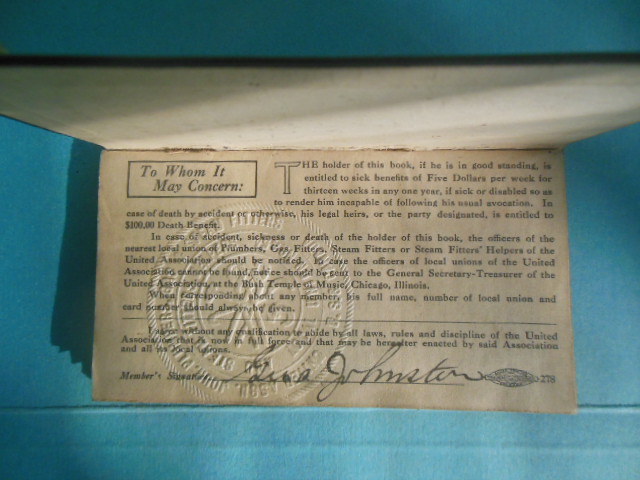 To Whom It
May Concern:
THE holder of this book, if he is in good standing, is
entitled to sick benefits of Five Dollars per week for
thirteen weeks in any one year, if sick or disabled so as
to render him incapable of following his usual avocation. In
case of death by accident or otherwise, his legal heirs, or the party designated, is entitled to
$100.00 Death Benefit.
In case of accident, sickness or death of the holder of this book, the officers of the
nearest local union of Plumbers, Gas Fitters, Steam Fitters or Steam Fitters' Helpers of the
United Association should be notified. In case the officers of local unions of the United
Association cannot be found, notice should be sent to the General Secretary-Treasurer of the
United Association, at the Bush Temple of Music, Chicago, Illinois.
When corresponding about any member, his full name, number of local union and
card number should always be given.
I agree without any qualification to abide by all laws, rules and discipline of the United
Association that is now in full force and that may be hereafter enacted by said Association
and all its local unions.
Member's Signature Johnston 278